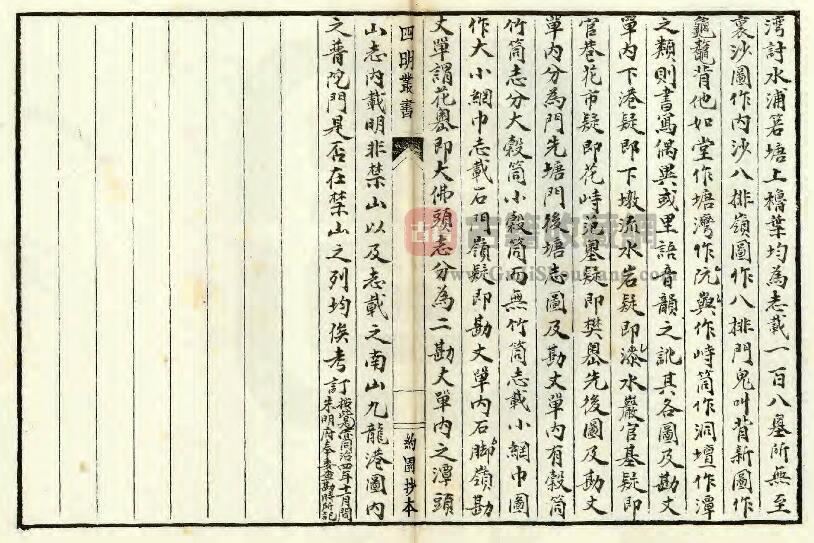 湾討水浦箬塘上櫓葉均為志載一百八墓所無至
裏沙圖作内沙八排嶺圖作八排門鬼叫背新圖作
龜背他如堂作塘灣作阮與作峙筒作洞壇作潭
之類則書寫偶異或里語音韻之訛其各圖及勘丈
單内下港疑即下墩流水岩疑即漆水巖官基疑即
官巷花市疑即花峙范墨疑即樊嶴先後圖及勘丈
單内分為門先塘門後塘志圖及勘丈單内有穀筒
竹筒志分大穀筒小穀筒而無竹筒志載小網巾圖
作大小網巾志載石門嶺疑即勘丈單内石脚嶺勘
丈單謂花嶴即大佛頭志分為二勘丈單内之潭頭
四明叢書
約園抄本
山志内載明非禁山以及志載之南山九龍港圖内
之普陀門是否在禁山之列均俟考
同治四年十一月間
訂朱明府奉委查勘時所記
古籍收藏網
www.GuJiShouCang.com